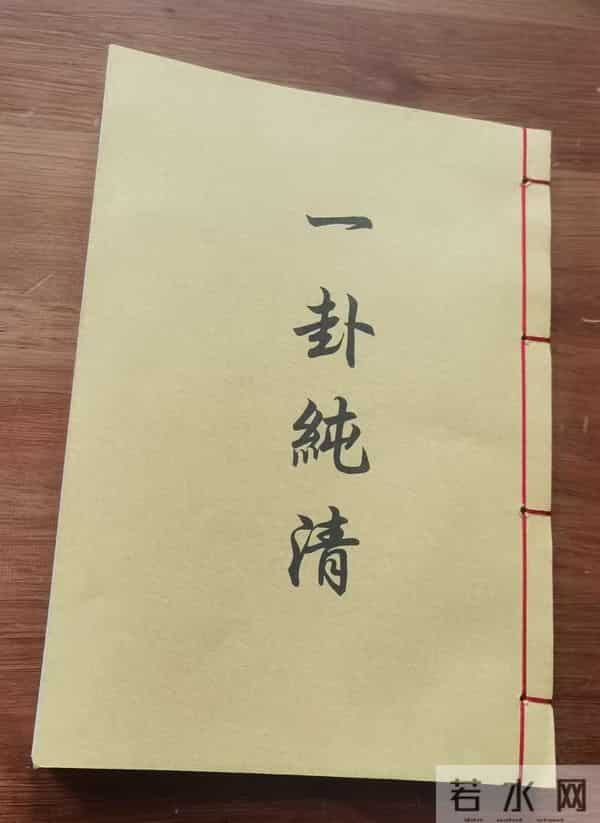 一卦純清
若水网